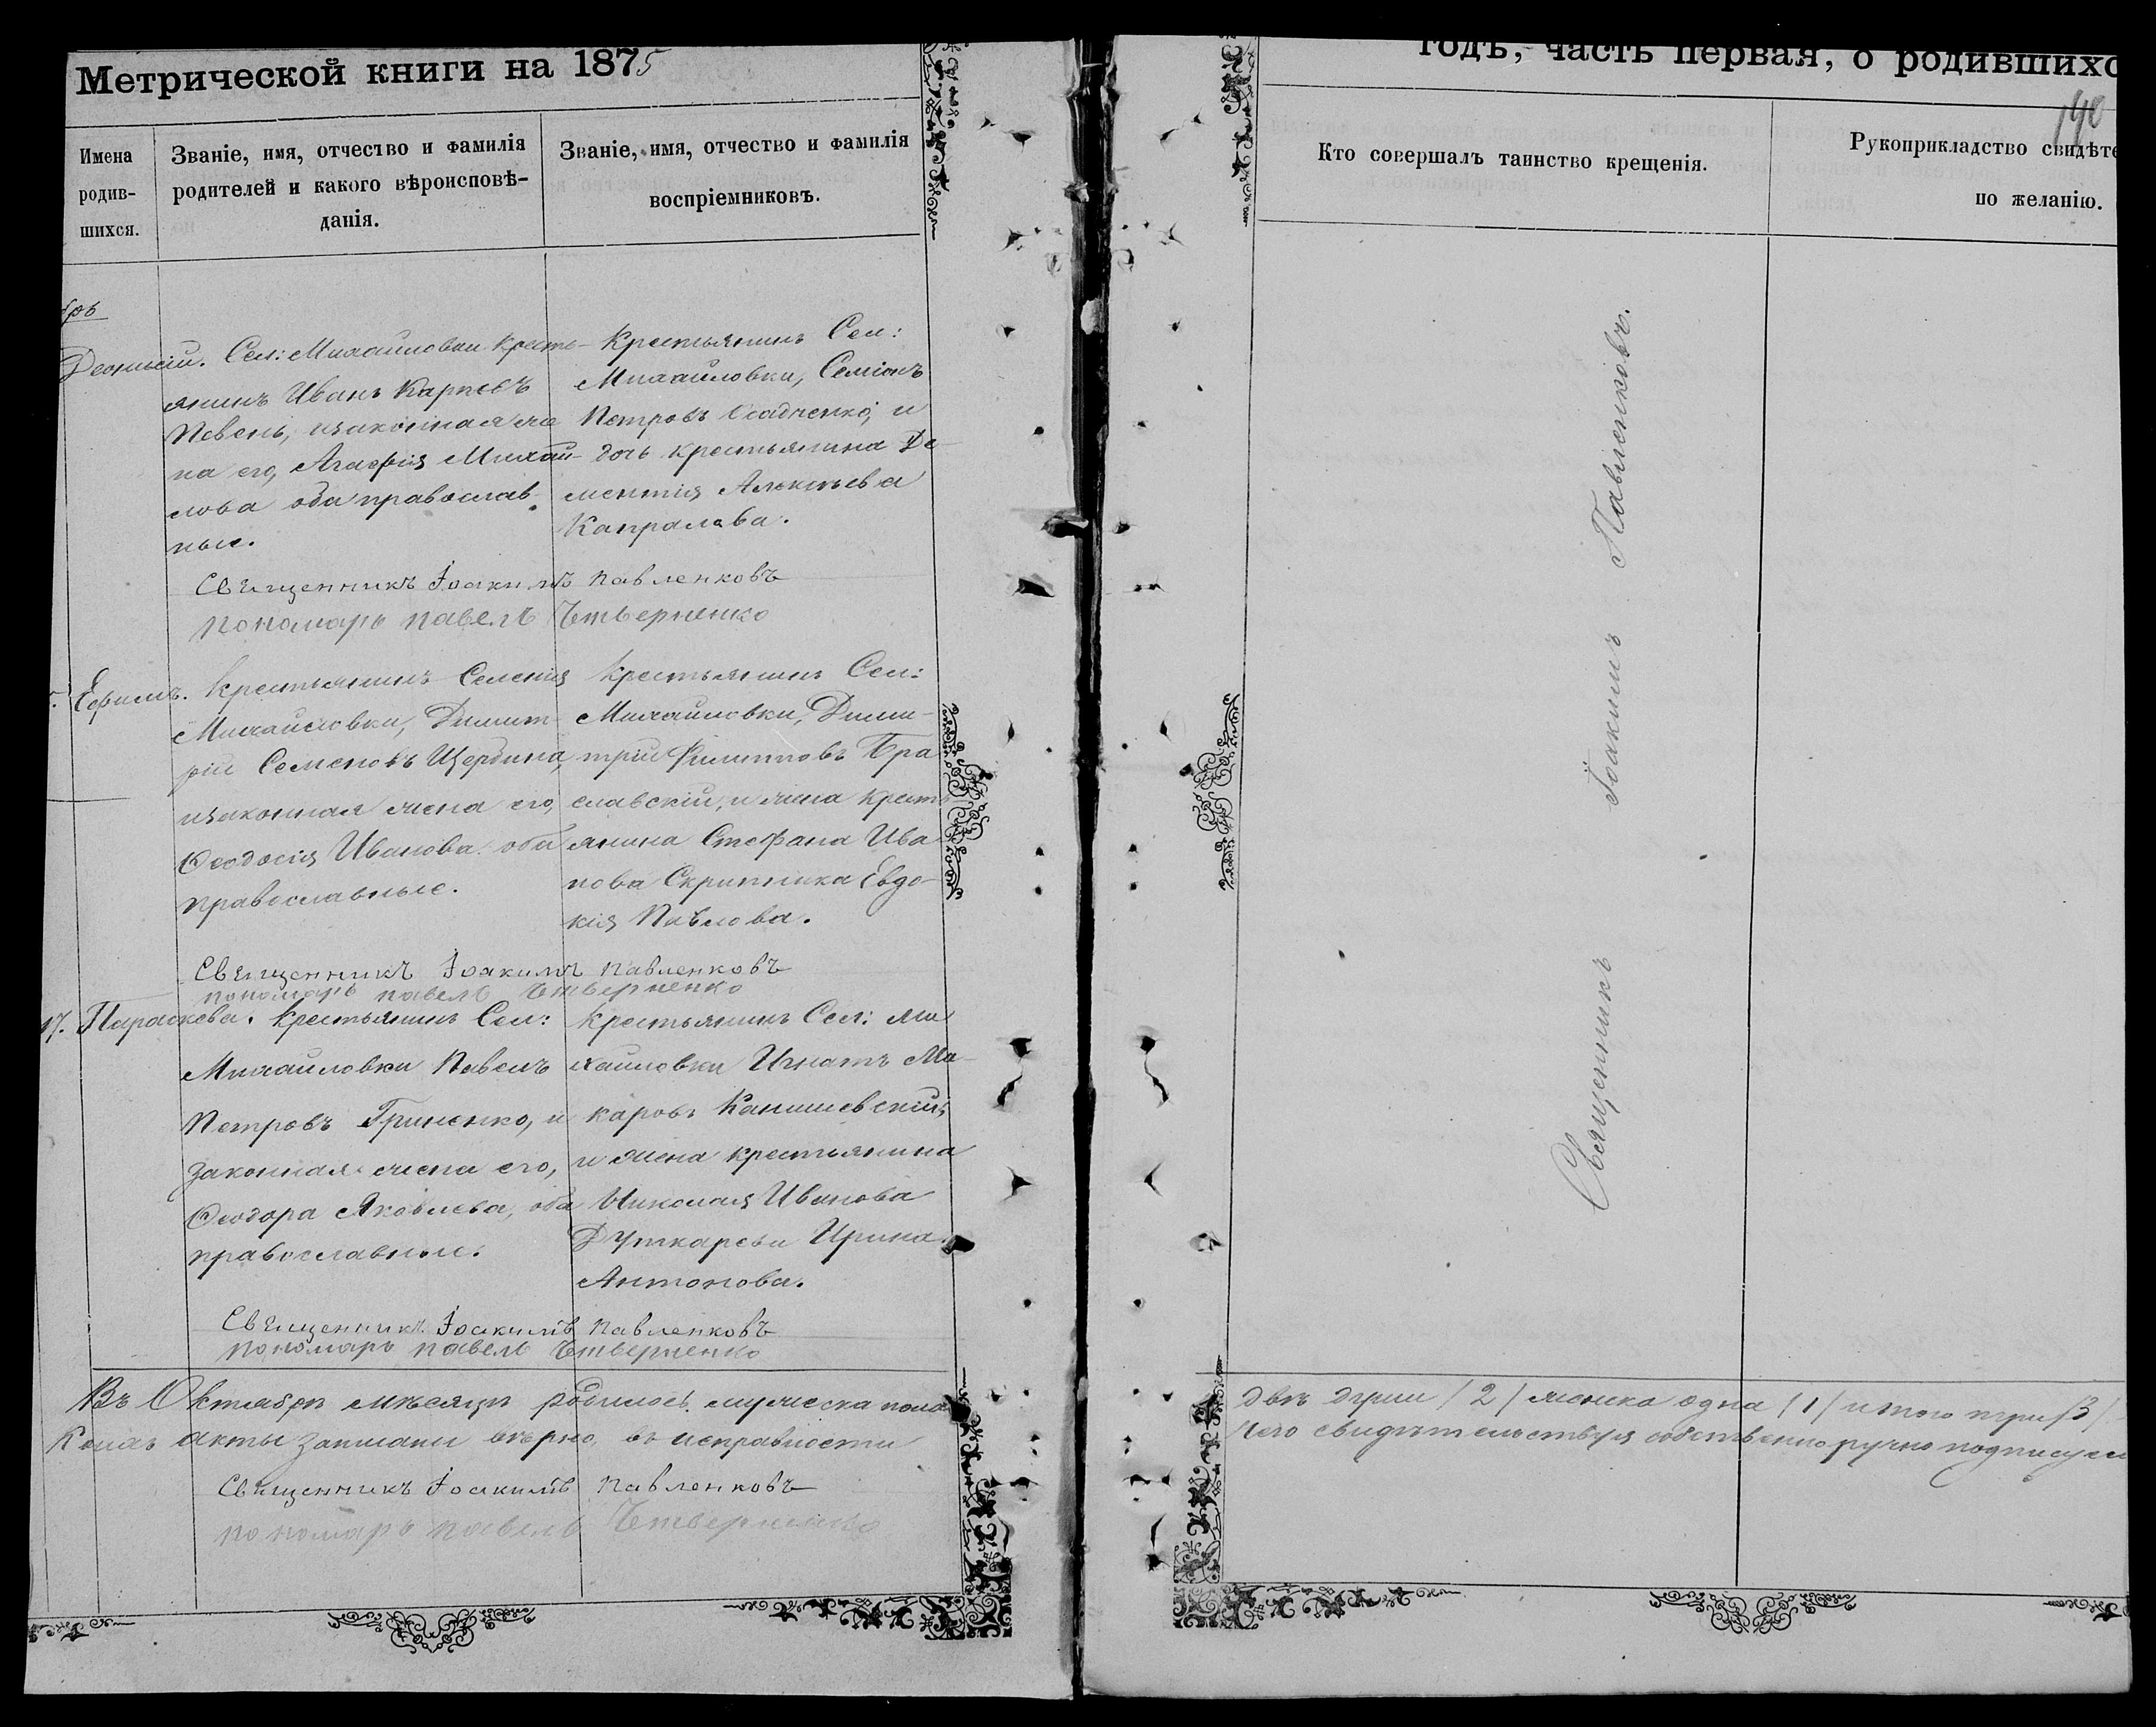 Метрической книги на 1875
годъ, часть первая, о родившихс
140
Имена
родив-
шихся.
Званіе, имя, отчество и фамилія
родителей и какого вѣроисповѣ-
данія.
Званіе, имя, отчество и фамилія
воспріемниковъ.
Кто совершалъ таинство крещенія.
Рукоприкладство свидѣте
по желанію.
брь
Деонисій.
Сел: Михайловки кресть-
янинъ Иванъ Карповъ
Певень, изаконная же
на его, Агафія Михай-
лова оба православ-
ные.
Крестьянинъ Сел:
Михайловки, Семіонъ
Петровъ Осадченко, и
дочь крестьянина Де-
ментія Алексѣева
Капралова.
Священникъ Іоакимъ Павленковъ
пономарь павелъ Четверненко
Ефимъ.
Крестьянинъ Селенія
Михайловки, Димит-
рій Семеновъ Щербина,
изаконная жена его,
Ѳеодосія Иванова оба
православные.
Крестьянинъ Сел:
Михайловки, Дими-
трій Филипповъ Бра
славскій, и жена кресть
янина Стефана Ива
нова Скрипника Евдо-
кія Павлова.
Священникъ Іоакимъ Павленковъ
пономарь павелъ Четверненко
17. Параскева.
Крестьянинъ Сел:
Михайловки Павелъ
Петровъ Гриненко, и
законная жена его,
Ѳеодора Яковлева, оба
православные.
Крестьянинъ Сел: Ми
хайловки Игнатъ Ма-
каровъ Канишевскій,
и жена крестьянина
Николая Иванова
Дуткарева Ирина
Антонова.
Священникъ Іоакимъ Павленковъ
пономарь павелъ Четверненко
Священникъ Іоакимъ Павленковъ.
Въ Октябрѣ мѣсяцѣ родилось мужеска пола
двѣ души /2/ женска одна /1/ итого три /3/
Коихъ акты записаны вѣрно, въ исправности
чего свидѣтельствуя собственноручно подписуем
Священникъ Іоакимъ Павленковъ
пономарь павелъ Четверненко